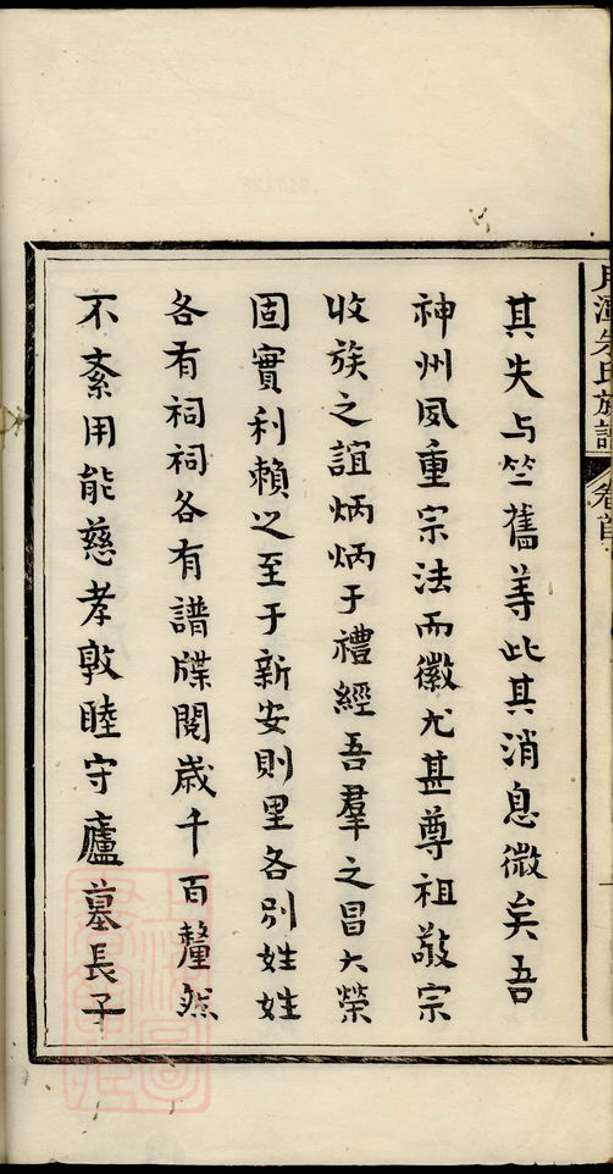 月潭朱氏族譜 卷首
其失与竺舊等此其消息微矣吾
神州夙重宗法而徽尤甚尊祖敬宗
收族之誼炳炳于禮經吾羣之昌大榮
固實利賴之至于新安則里各別姓姓
各有祠祠各有譜牒閱歲千百釐然
不紊用能慈孝敦睦守廬墓長子